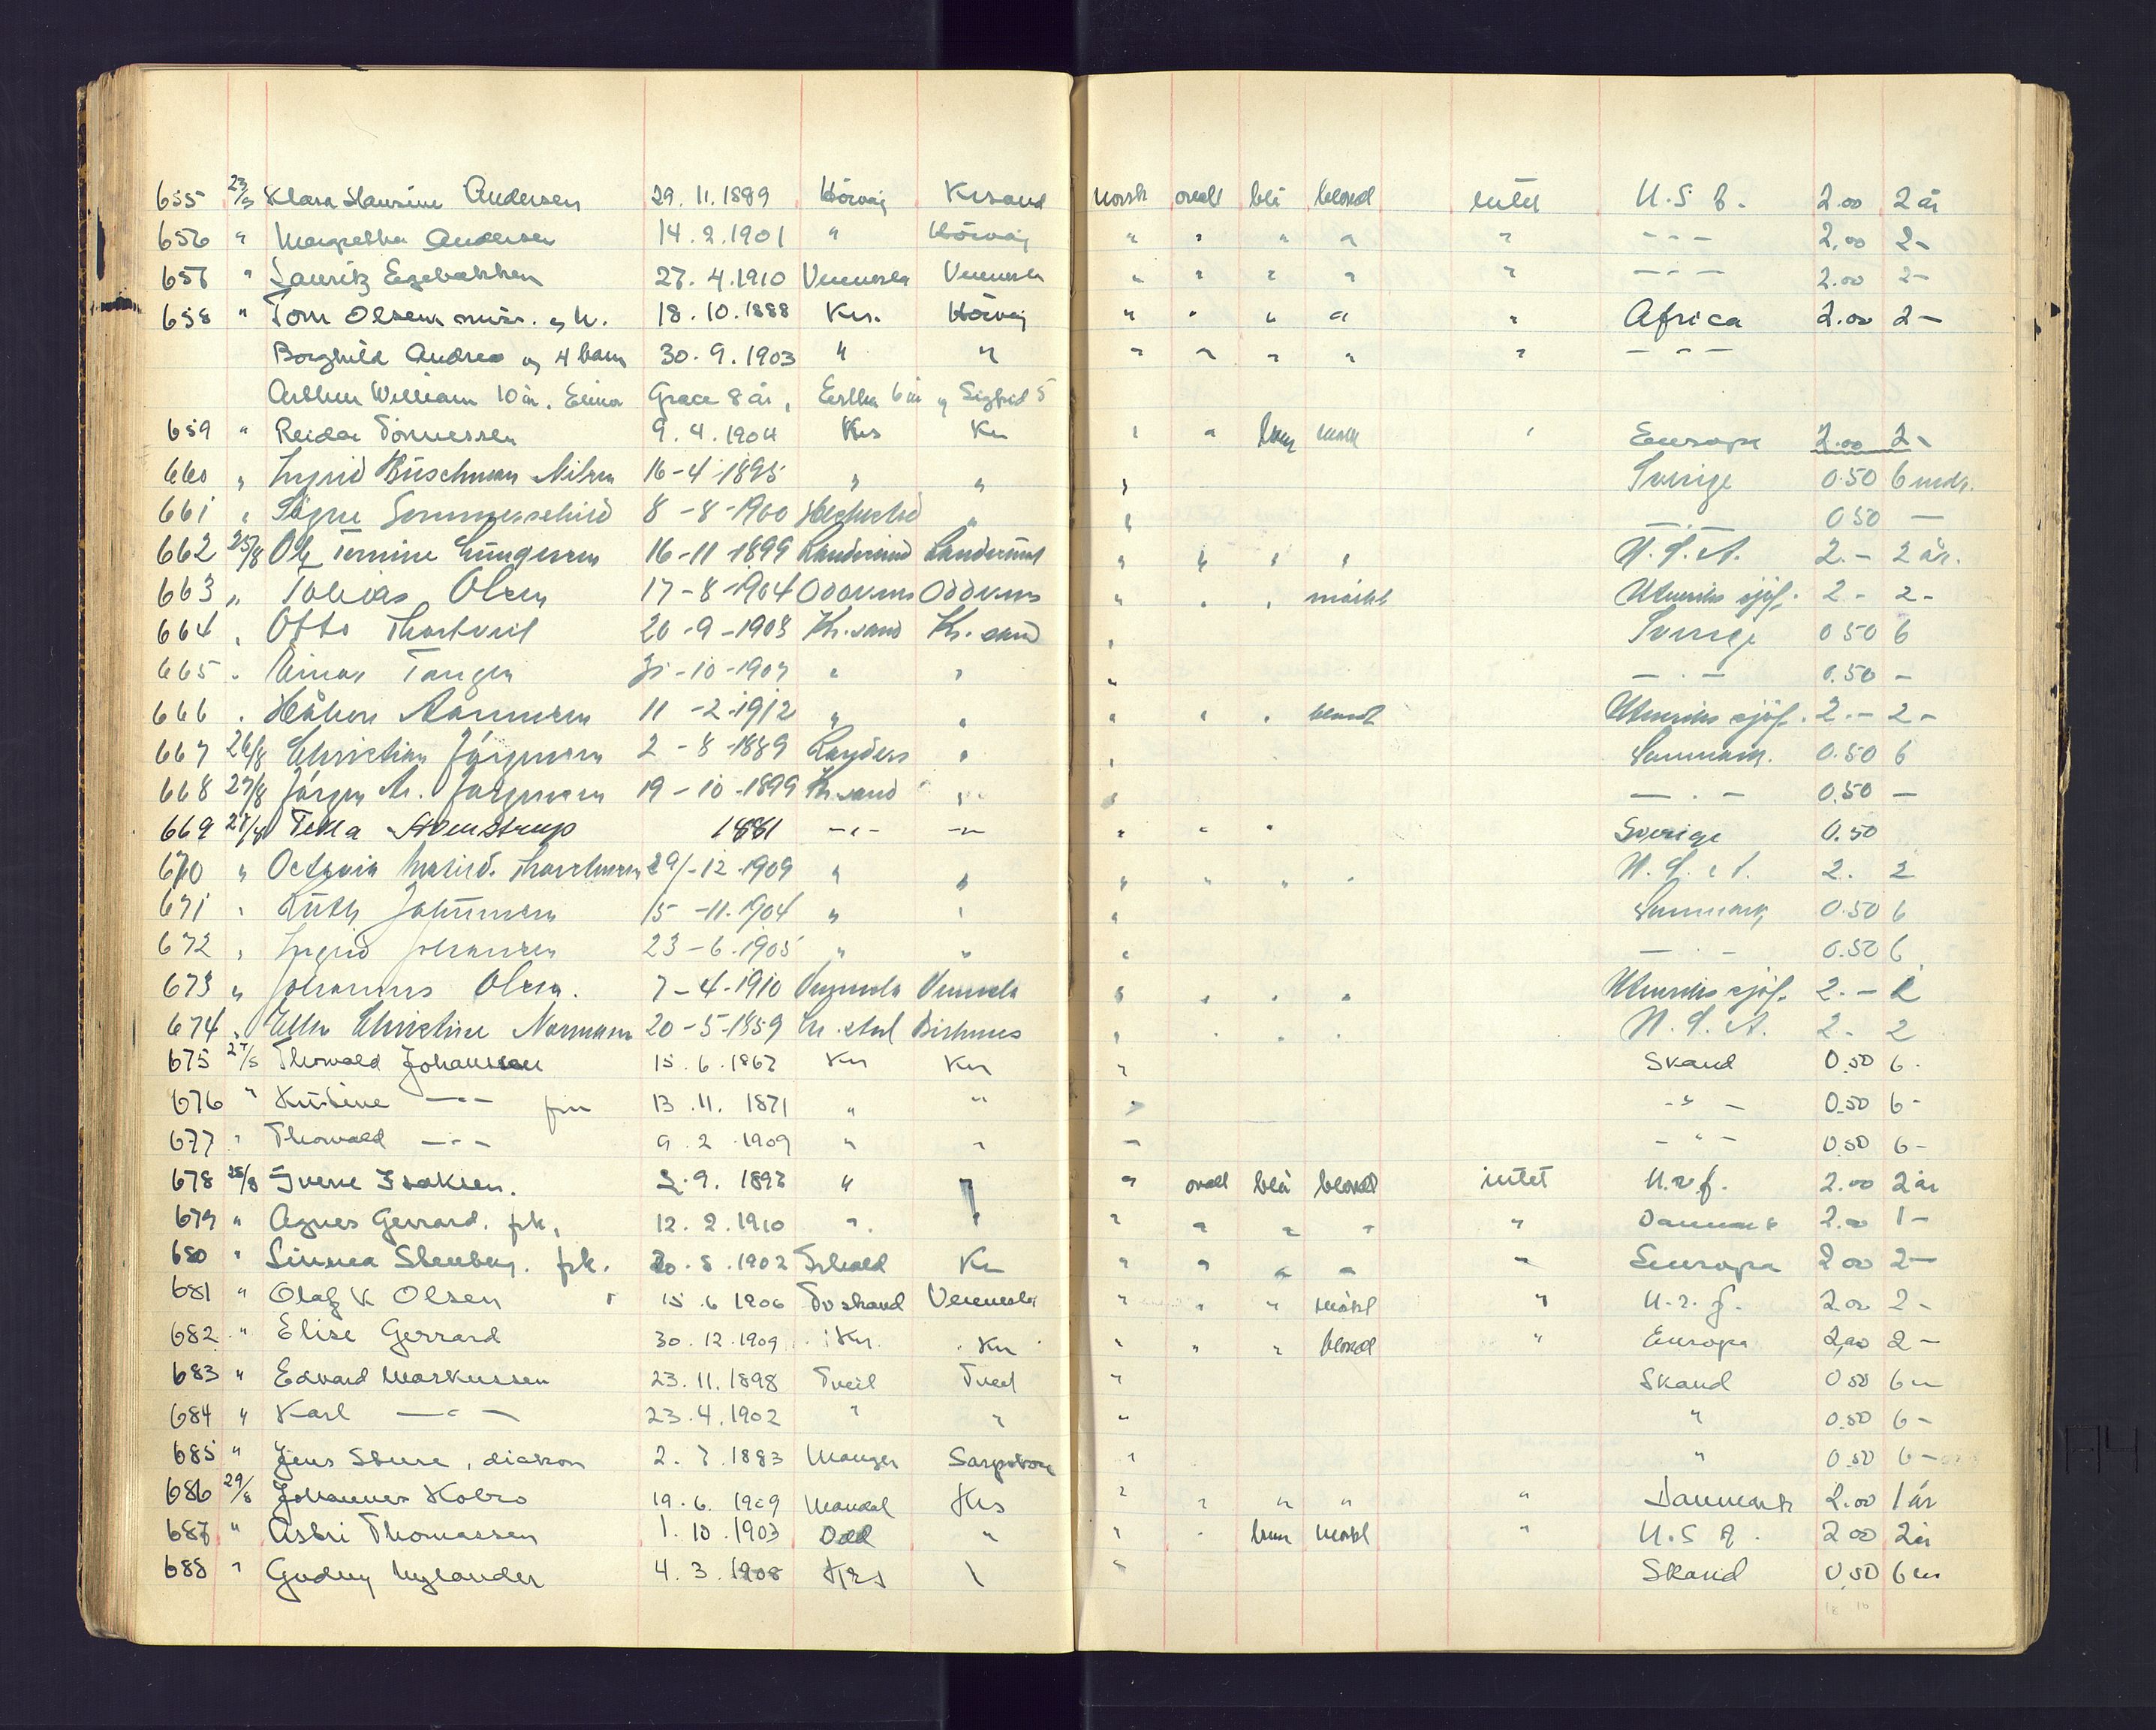 655 23/8 Klara Hansine Andersen 29.11.1899 Hövåg Krsand norsk ovalt blå blond intet U.S.A. 2.00 2 år
656 " Margretha Andersen 14.2.1901 " Hövåg " " " " " - " - 2.00 2 -
657 " Lauritz Egebakken 27.4.1910 Vennesla Vennesla " " " " " - " - 2.00 2 -
658 " Tom Olsen misr. og h. 18.10.1888 Krs. Hövåg " " " " " Africa 2.00 2 -
Borghild Andrea og 4 barn 30.9.1903 " " " " " " " - " -
Arthur William 10 år, Elinor Grace 8 år, Esther 6 år og Sigfrid 5
659 " Reidar Tönnessen 9.4.1904 Krs Kr " " brun mörk " Europa 2.00 2 -
660 " Ingrid Büschman Nilsen 16-4-1895 " " " Sverige 0.50 6 mdr.
661 " Signe Sommerschild 8-8-1900 " " - " - 0 50 -
662 25/8 Ole Tomine 16-11-1899 Randesund Randesund " " " " U.S.A. 2.- 2 år.
663 " Tobias Olsen 17-8-1904 Oddernes Oddernes " " " mörkt Utenriks sjöf. 2 - 2 -
664 " Otto Thortveit 20-9-1903 Kr.sand Kr.sand " Sverige 0 50 6
665 " Einar Tangen 31-10-1907 " " " - " - 0.50 -
666 " Håkon Aanensen 11-2-1912 " " " " " blondt Utenriks sjöf. 2.- 2 -
667 26/8 Christian Jörgensen 2-8-1889 Randers " " Danmark. 0.50 6
668 27/8 Jörgen M. Jörgensen 19-10-1899 Kr.sand " " - " - 0.50 -
669 27/8 Tekla 1881 - " - - " - " " " Sverige 0.50
670 " Octavia 29/-12-1909 " " " " " " U.S.A. 2. 2
671 " Ruth Johannesen 15-11-1904 " " " Danmark 0.50 6
672 " Ingrid Johansen 23-6-1905 " " " - " - 0.50 6
673 " Johannes Olsen. 7-4-1910 Vennesla Vennesla " " " " Utenriks sjöf. 2.- 2
674 " Ellen Christine Normann 20-5-1859 Birkenes " " " " U.S.A. 2 - 2
675 27/8 Thorvald Johannsen 15.6.1867 Krs Krs " Skand 0.50 6 -
676 " Kristine - " - fru 13.11.1871 " " " - " - 0.50 6 -
677 " Thorvald - " - 9.2.1909 " " " - " - 0.50 6 -
678 28/8 Sverre Isaksen. 2.9.1897 " " " ovalt blå blond intet U.r.f. 2.00 2 år
679 " Agnes Gerrard. frk. 12.2.1910 " " " " " " " Danmark 2.00 1 -
680 " Linnea Stenberg. frk. 20.5.1902 Kr " " " " " Europa 2 00 2 -
681 " Olaf K Olsen 15.6.1906 Vennesla " " " mörkt " U.r.f. 2.00 2 -
682 " Elise Gerrard 30.12.1909 Kr. Kr " " " blond " Europa 2,00 2 -
683 " Edvard Markussen 23.11.1898 Tveit Tveit " Skand 0 50 6 m
684 " Karl - " - 23.4.1902 " " " " 0.50 6 -
685 " Jens Sture, diakon 2.7.1883 Manger Sarpsborg " " 0.50 6 -
686 29/8 Johannes Kobro 19.6.1909 Mandal Krs " " " " " Danmark 2.00 1 år
687 " Asbri Thomassen 1.10.1903 Odd " " " brun mörkt " U.S.A. 2 00 2 år
688 " Gudny Nylander 4.3.1908 Krs \ " Skand 0,50 6 m